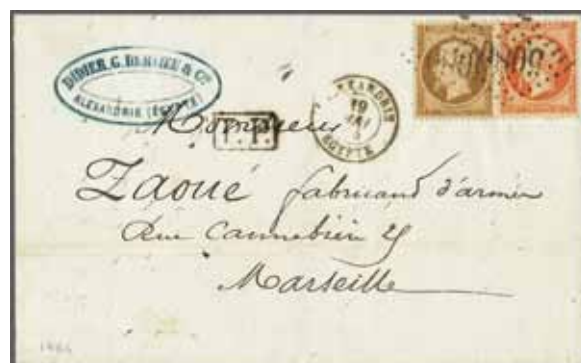 DIDIER G. & Cie
ALEXANDRIE (EGYPTE)
ALEXANDRIE
19
MAI
EGYPTE
5080
P.P.
Monsieur
Zaoué fabricand d'armes
Rue Cannebière 25
Marseille